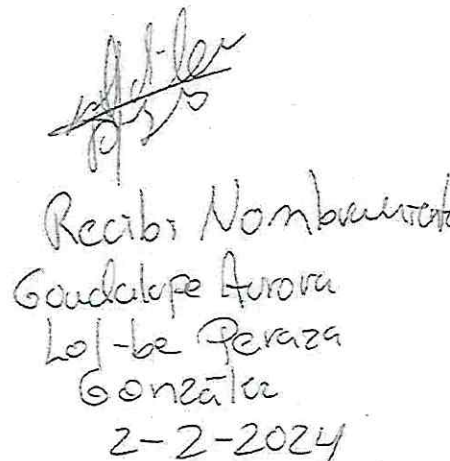 Recibi Nombramiento
Guadalupe Aurora
Lol-be Peraza
González
2-2-2024